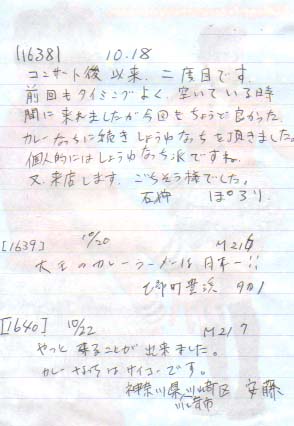 [1638] 10.18
コンサート後以来、二度目です。
前回もタイミングよく、空いている時
間に来れましたが今回もちょうど良かった。
カレーなっちに続きしょうゆなっちを頂きました。
個人的にはしょうゆなっち派ですね。
又、来店します。ごちそう様でした。
石狩 ぽろり.
[1639] 10/20 M216
大王のカレーラーメンは日本一!!
乙部町豊浜
[1640] 10/22 M217
やっと来ることが出来ました。
カレーなっちはサイコーです。
神奈川県川崎区 安藤
川崎市